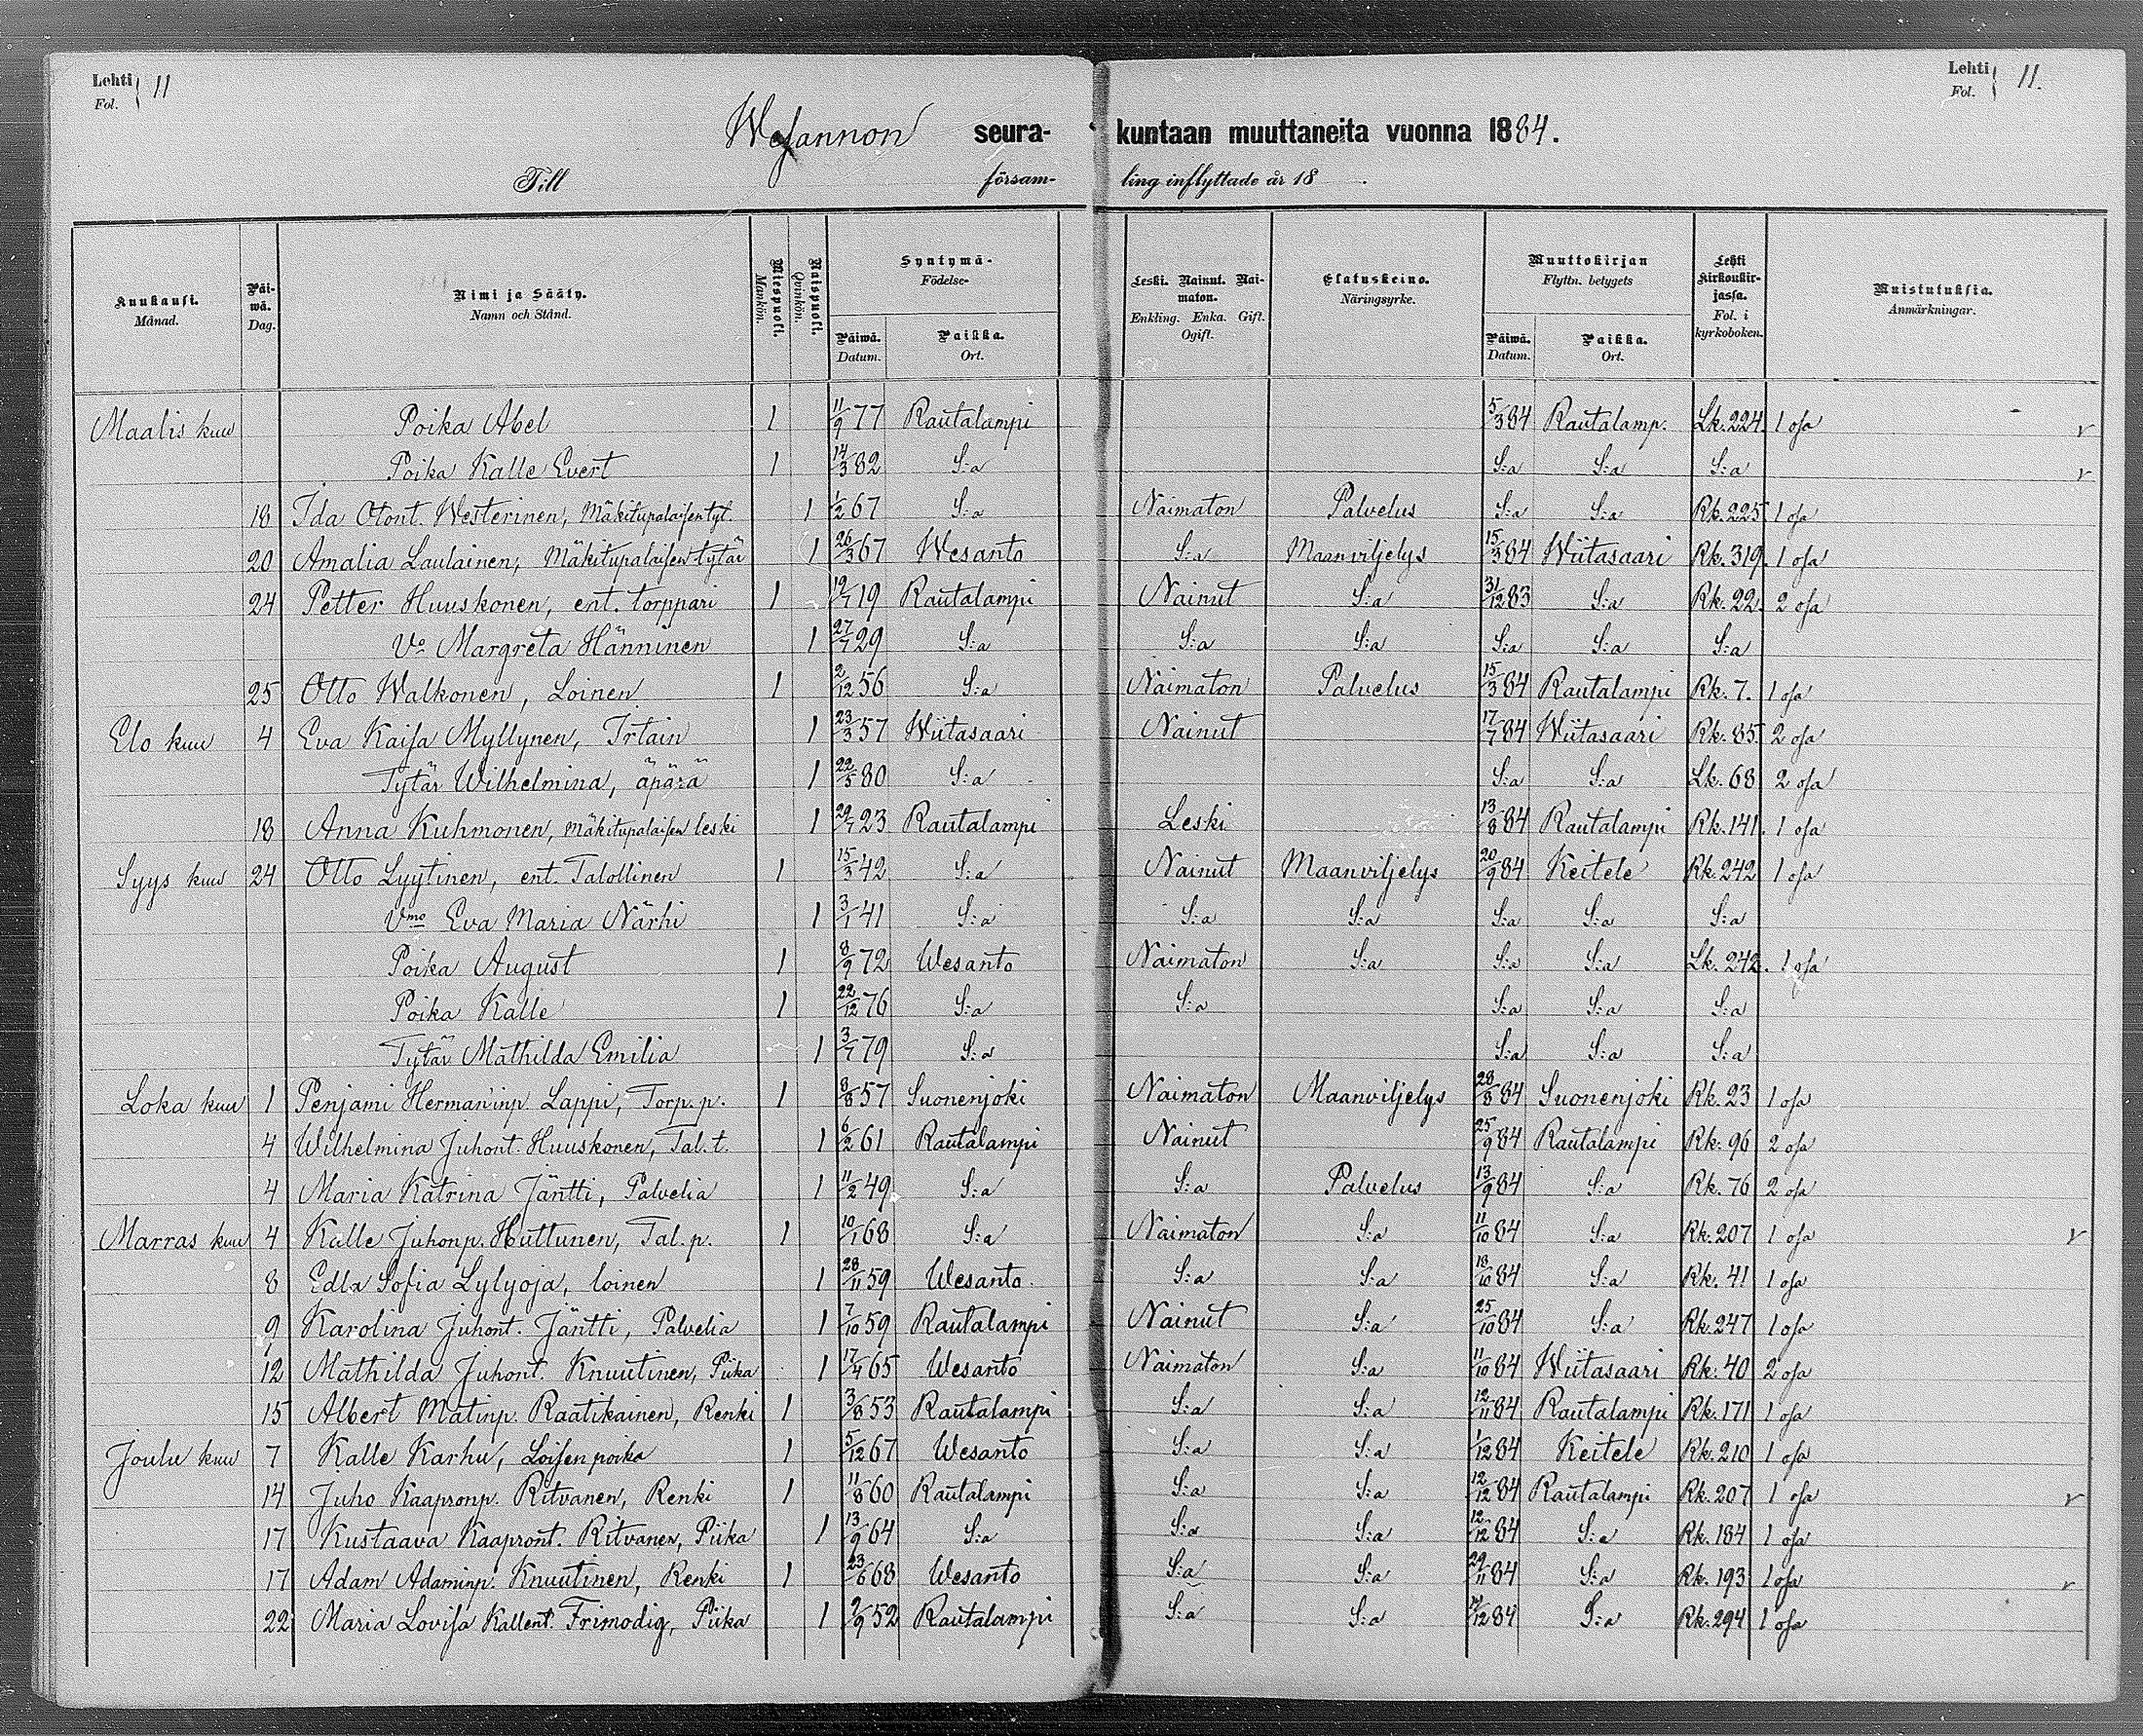 Lehti Fol. } 11
Lehti Fol. } 11.
Wesannon seura- kuntaan muuttaneita vuonna 1884.
Till församling inflyttade år 18 .
Kuukausi. Månad. | Päiwä. Dag. | Nimi ja Sääty. Namn och Stånd. | Miespuoli. Mankön. | Naispuoli. Qvinkön. | Syntymä- Födelse- Päiwä. Datum. | Paikka. Ort. | Leski. Nainut. Naimaton. Enkling. Enka. Gift. Ogift. | Elatuskeino. Näringsyrke. | Muuttokirjan Flyttn. betygets Päiwä. Datum. | Paikka. Ort. | Lehti Kirkonkirjassa. Fol. i kyrkoboken. | Muistutuksia. Anmärkningar.
Maalis kuu Poika Abel 1 11/9 77 Rautalampi 5/3 84 Rautalamp. Lk. 224. 1 osa v
Poika Kalle Evert 1 14/3 82 S:a S:a S:a S:a v
18 Ida Otont. Westerinen, Mäkitupalaisen tyt. 1 1/2 67 S:a Naimaton Palvelus S:a S:a Rk. 225. 1 osa
20 Amalia Laulainen, Mäkitupalaisen tytär 1 26/3 67 Wesanto S:a Maanviljelys 15/3 84 Wiitasaari Rk. 319. 1 osa
24 Petter Huuskonen, ent. torppari 1 19/7 19 Rautalampi Nainut S:a 31/12 83 S:a Rk. 22. 2 osa
Vo Margreta Hänninen 1 27/7 29 S:a S:a S:a S:a S:a S:a
25 Otto Walkonen, Loinen 1 2/12 56 S:a Naimaton Palvelus 15/3 84 Rautalampi Rk. 7. 1 osa
Elo kuu 4 Eva Kaisa Myllynen, Irtain 1 23/3 57 Wiitasaari Nainut 17/7 84 Wiitasaari Rk. 85. 2 osa
Tytär Wilhelmina, äpärä 1 22/5 80 S:a S:a S:a Lk. 68 2 osa
18 Anna Kuhmonen, mäkitupalaisen leski 1 29/7 23 Rautalampi Leski 13/8 84 Rautalampi Rk. 141. 1 osa
Syys kuu 24 Otto Lyytinen, ent. Talollinen 1 15/3 42 S:a Nainut Maanviljelys 20/9 84 Keitele Rk. 242 1 osa
Vmo Eva Maria Närhi 1 3/1 41 S:a S:a S:a S:a S:a S:a
Poika August 1 8/9 72 Wesanto Naimaton S:a S:a S:a Lk. 242. 1 osa
Poika Kalle 1 22/12 76 S:a S:a S:a S:a S:a
Tytär Mathilda Emilia 1 3/7 79 S:a S:a S:a S:a
Loka kuu 1 Penjami Herman'inp. Lappi, Torp. p. 1 8/8 57 Suonenjoki Naimaton Maanviljelys 28/8 84 Suonenjoki Rk. 23 1 osa
4 Wilhelmina Juhont. Huuskonen, Tal. t. 1 6/2 61 Rautalampi Nainut 25/9 84 Rautalampi Rk. 96 2 osa
4 Maria Katrina Jäntti, Palvelia 1 11/2 49 S:a S:a Palvelus 13/9 84 S:a Rk. 76 2 osa
Marras kuu 4 Kalle Juhonp. Huttunen, Tal. p. 1 10/1 68 S:a Naimaton S:a 11/10 84 S:a Rk. 207 1 osa v
8 Edla Sofia Lylyoja, loinen 1 28/11 59 Wesanto. S:a S:a 18/10 84 S:a Rk. 41 1 osa
9 Karolina Juhont. Jäntti, Palvelia 1 7/10 59 Rautalampi Nainut S:a 25/10 84 S:a Rk. 247 1 osa
12 Mathilda Juhont. Knuutinen, Piika 1 17/4 65 Wesanto Naimaton S:a 11/10 84 Wiitasaari Rk. 40 2 osa
15 Albert Matinp. Raatikainen, Renki 1 3/8 53 Rautalampi S:a S:a 12/11 84 Rautalampi Rk. 171 1 osa
Joulu kuu 7 Kalle Karhu, Loisen poika 1 5/12 67 Wesanto S:a S:a 1/12 84 Keitele Rk. 210 1 osa
14 Juho Kaapronp. Ritvanen, Renki 1 11/8 60 Rautalampi S:a S:a 12/12 84 Rautalampi Rk. 207 1 osa v
17 Kustaava Kaapront. Ritvanen, Piika 1 13/9 64 S:a S:a S:a 12/12 84 S:a Rk. 184 1 osa
17 Adam Adaminp. Knuutinen, Renki 1 23/6 68 Wesanto S:a S:a 29/11 84 S:a Rk. 193 1 osa v
22 Maria Lovisa Kallent. Frimodig, Piika 1 2/9 52 Rautalampi S:a S:a /12 84 S:a Rk. 294 1 osa